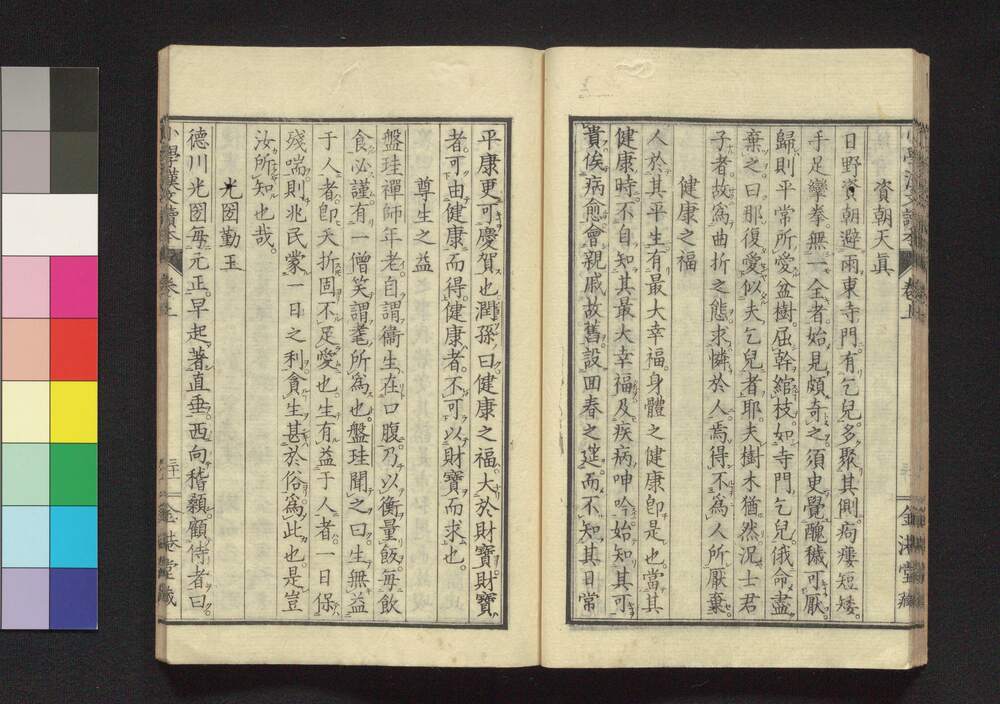 資朝天眞
日野資朝避雨東寺門有乞兒多聚其側痀瘻短矮
手足攣拳無一全者始見頗奇之須臾覺醜穢可厭
歸則平常所愛盆樹屈幹綰枝如寺門乞兒俄命盡
棄之曰那復愛似夫乞兒者耶夫樹木猶然況士君
子者故爲曲折之態求憐於人焉得不爲人所厭棄
健康之福
人於其平生有最大幸福身體之健康卽是也當其
健康時不自知其最大幸福及疾病呻吟始知其可
貴俟病愈會親戚故舊設回春之筵而不知其日常
小學漢文讀本 卷上 金港堂藏
平康更可慶賀也潤孫曰健康之福大於財寶財寶
者可由健康而得健康者不可以財寶而求也
尊生之益
盤珪禪師年老自謂衞生在口腹乃以衡量飯每飮
食必謹有一僧笑謂耄所爲也盤珪聞之曰生無益
于人者卽夭折固不足愛也生有益于人者一日保
殘喘則兆民蒙一日之利貪生甚於俗爲此也是豈
汝所知也哉。
光圀勤王
德川光圀每元正早起著直垂西向稽顙顧侍者曰
小學漢文讀本 卷上 三十一 金港堂藏